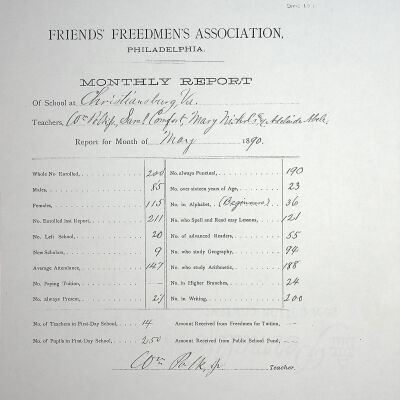 FRIENDS' FREEDMEN'S ASSOCIATION,
PHILADELPHIA.
MONTHLY REPORT
Of School at Christiansburg, Va.
Teachers, Wm Polk Jr, Saml Comfort, Mary Nichols & Adelaide
Report for Month of May 1890.
Whole No. Enrolled, 200
Males, 85
Females, 115
No. Enrolled last Report, 211
No. Left School, 20
New Scholars, 9
Average Attendance, 147
No. Paying Tuition, —
No. always Present, 27
No. always Punctual, 190
No. over sixteen years of Age, 23
No. in Alphabet, (Beginners) 36
No. who Spell and Read easy Lessons, 121
No. of advanced Readers, 55
No. who study Geography, 94
No. who study Arithmetic, 188
No. in Higher Branches, 24
No. in Writing, 200
No. of Teachers in First-Day School, 14
No. of Pupils in First-Day School, 250
Amount Received from Freedmen for Tuition, —
Amount Received from Public School Fund, —
Wm Polk, Jr. Teacher.